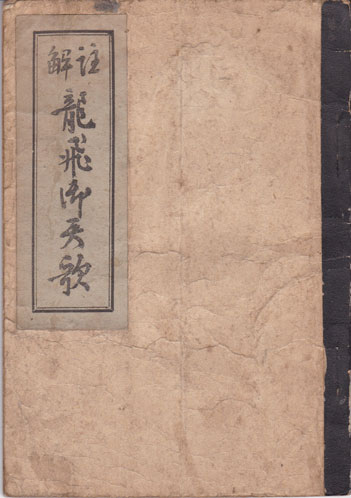 註解
龍飛御天歌